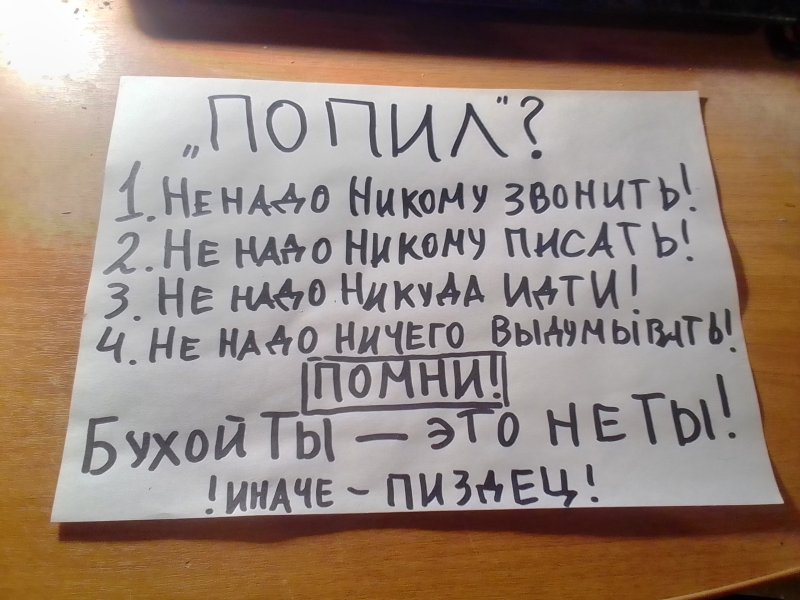 „ПОПИЛ"?
1. НЕ НАДО НИКОМУ ЗВОНИТЬ!
2. НЕ НАДО НИКОМУ ПИСАТЬ!
3. НЕ НАДО НИКУДА ИДТИ!
4. НЕ НАДО НИЧЕГО ВЫДУМЫВАТЬ!
ПОМНИ!
БУХОЙ ТЫ — ЭТО НЕ ТЫ!
! ИНАЧЕ - ПИЗДЕЦ!